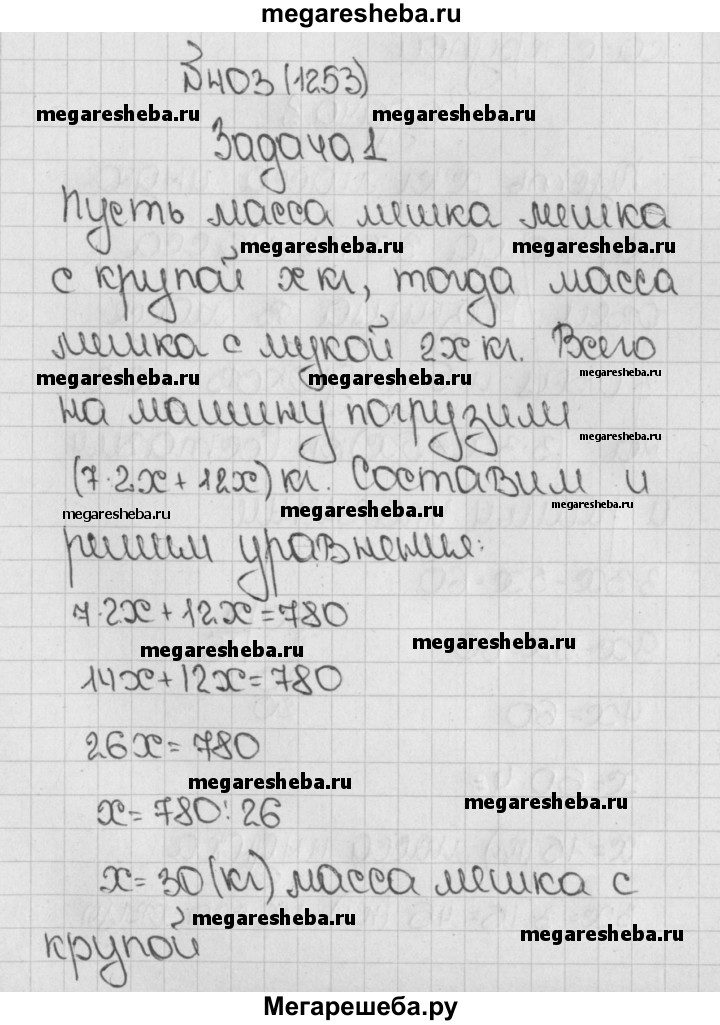 megaresheba.ru
№403 (1253)
megaresheba.ru megaresheba.ru
Задача 1
Пусть масса мешка мешка
megaresheba.ru megaresheba.ru
с крупой x кг, тогда масса
мешка с мукой 2x кг. Всего
megaresheba.ru megaresheba.ru megaresheba.ru
на машину погрузили
megaresheba.ru
(7·2x + 12x) кг. Составим и
megaresheba.ru megaresheba.ru megaresheba.ru
решим уравнения:
7·2x + 12x = 780
megaresheba.ru megaresheba.ru
14x + 12x = 780
26x = 780
megaresheba.ru megaresheba.ru
x = 780 : 26
x = 30 (кг) масса мешка с
megaresheba.ru megaresheba.ru
крупой
Мегарешеба.ру